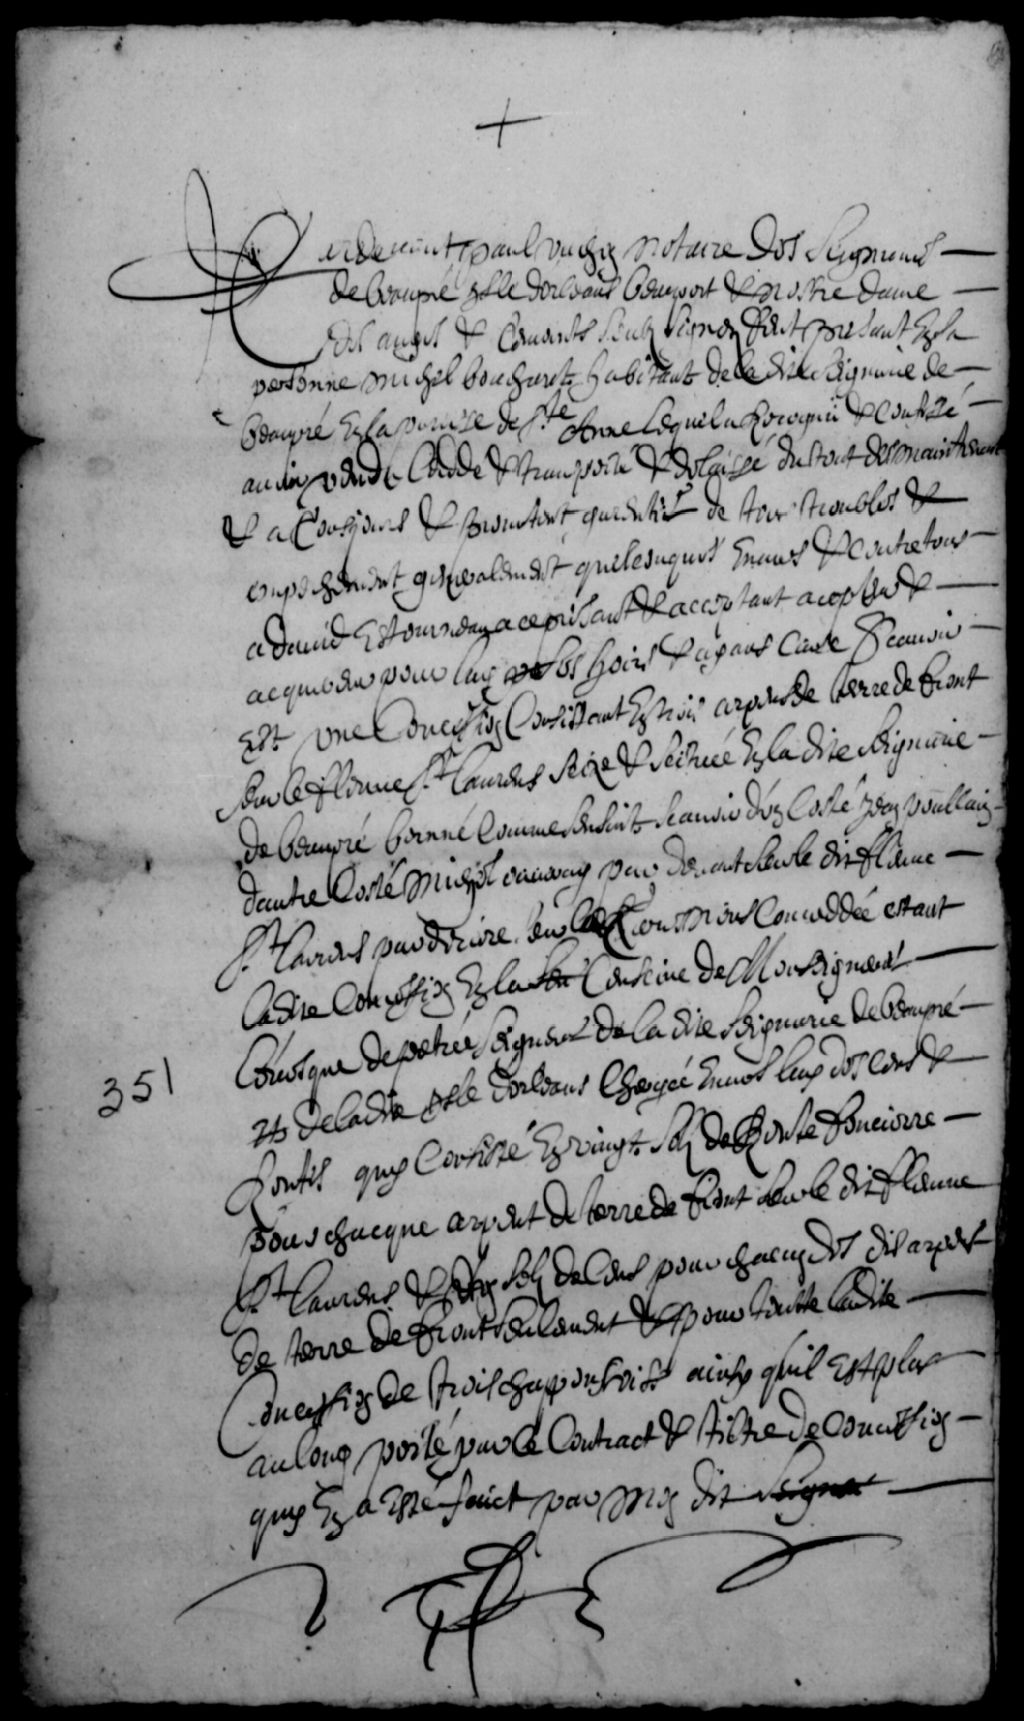 +
Pardevant paul vachon notaire des Seigneuries
de beaupré isle dorleans beauport & nostre dame
des anges & temoins soubz signez fut present En sa
personne michel boucharet habitant de la dite seigneurie de
beaupré En la paroisse de Ste Anne lequel a Recognu & confessé
avoir vendu Cedde & transporté & delaissé du tout des maintenant
& a tousjours & promettant garentir de tous troubles &
empeschement generalement quelconques Envers & contre tous
a david Estourneau a ce present & acceptant acepteur &
acquereur pour luy ses hoirs & ayans Cause Scavoir
Est une Concession Consistant En trois arpens de terre de front
sur le fleuve St. laurens size & scituée En la dite seigneurie
de beaupré borné Comme sensuit scavoir d'un Costé Jean poullain
dautre Costé michel par devant sur le dit fleuve
St. laurens par deriere aux terres nous Conceddée estant
ladite Concession En la Censive de Monseigneur
Levesque de petrée Seigneur de la dite Seigneurie de beaupré
& de ladite isle dorleans Chargée Envers luy des Cens &
Rentes quy Consiste En vingt solz de Rente fonciere
pour chacque arpent de terre de front sur le dit fleuve
St. laurens & solz de Cens pour chacun des dits arpens
de terre de front seulement & pour toutte ladite
Concession de trois chapons vifs ainsy quil Est plus
au long porté par le Contract & tiltre de Concession
quy En a Esté faict par mon dit Seigneur
351